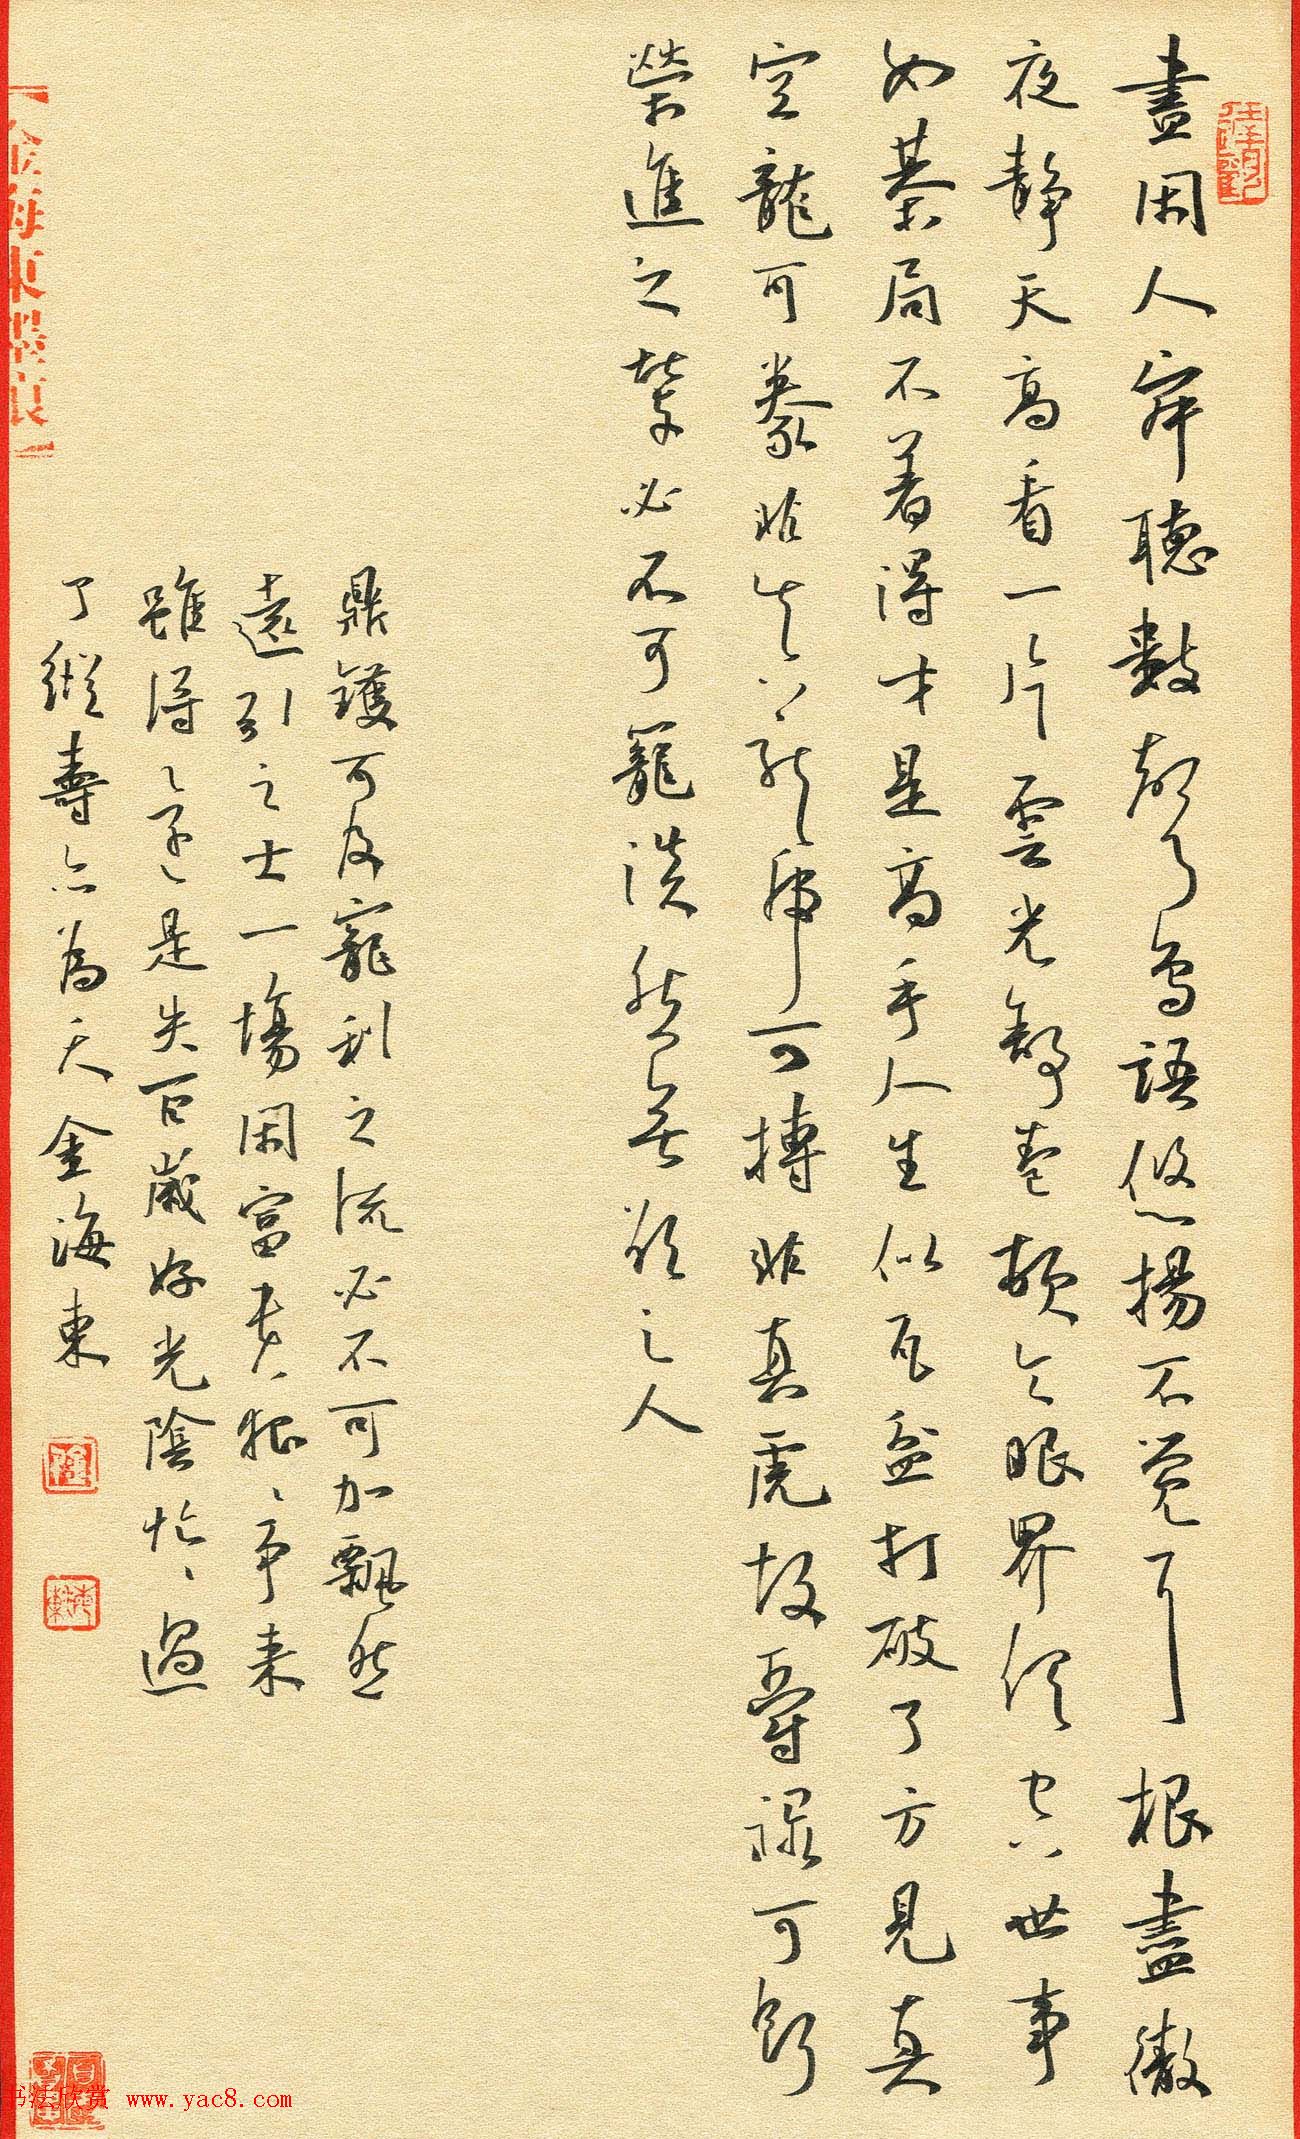 晝閑人寂聽數聲鳥語悠揚不覺耳根盡徹
夜靜天高看一片雲光舒卷頓令眼界俱空世事
如棊局不著得才是高手人生似瓦盆打破了方見真
空龍可豢非真龍虎可搏非真虎故爵祿可餌
榮進之輩必不可籠淡然無欲之人
鼎鑊可及寵利之流必不可加飄然
遠引之士一場閑富貴狠々爭來
雖得還是失百歲好光陰忙々過
了縱壽亦為夭金海東
金海東墨痕
书法欣赏 www.yac8.com